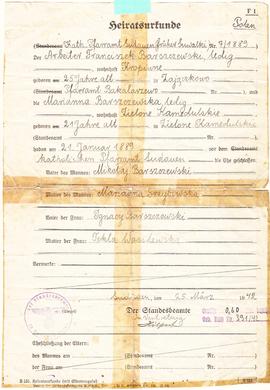 F 1.
Heiratsurkunde
Polen
(Standesamt Kath. Pfarramt Sudauen früher Suwalki Nr. 7/1889)
Der Arbeiter Franciszek Barszczewski, ledig
wohnhaft Kropiwne
geboren am 25 Jahre alt in Zajączkowo
(Standesamt Pfarramt Bakalarzewo Nr.), und
die Marianna Barszczewska, ledig
wohnhaft Zielone Kamedulskie
geboren am 21 Jahre alt in Zielone Kamedulskie
(Standesamt Nr.)
haben am 21. Januar 1889 vor dem
katholischen Pfarramt Sudauen die Ehe geschlossen.
Vater des Mannes: Mikołaj Barszczewski
Mutter des Mannes: Marianna
Vater der Frau: Ignacy Barszczewski
Mutter der Frau: Tekla Wasilewska
Vermerke:
Sudauen, den 25. März 1942
(Siegel)
Der Standesbeamte
0,60
391/42
Eheschließung der Eltern:
des Mannes am (Standesamt Nr.)
der Frau am (Standesamt Nr.)